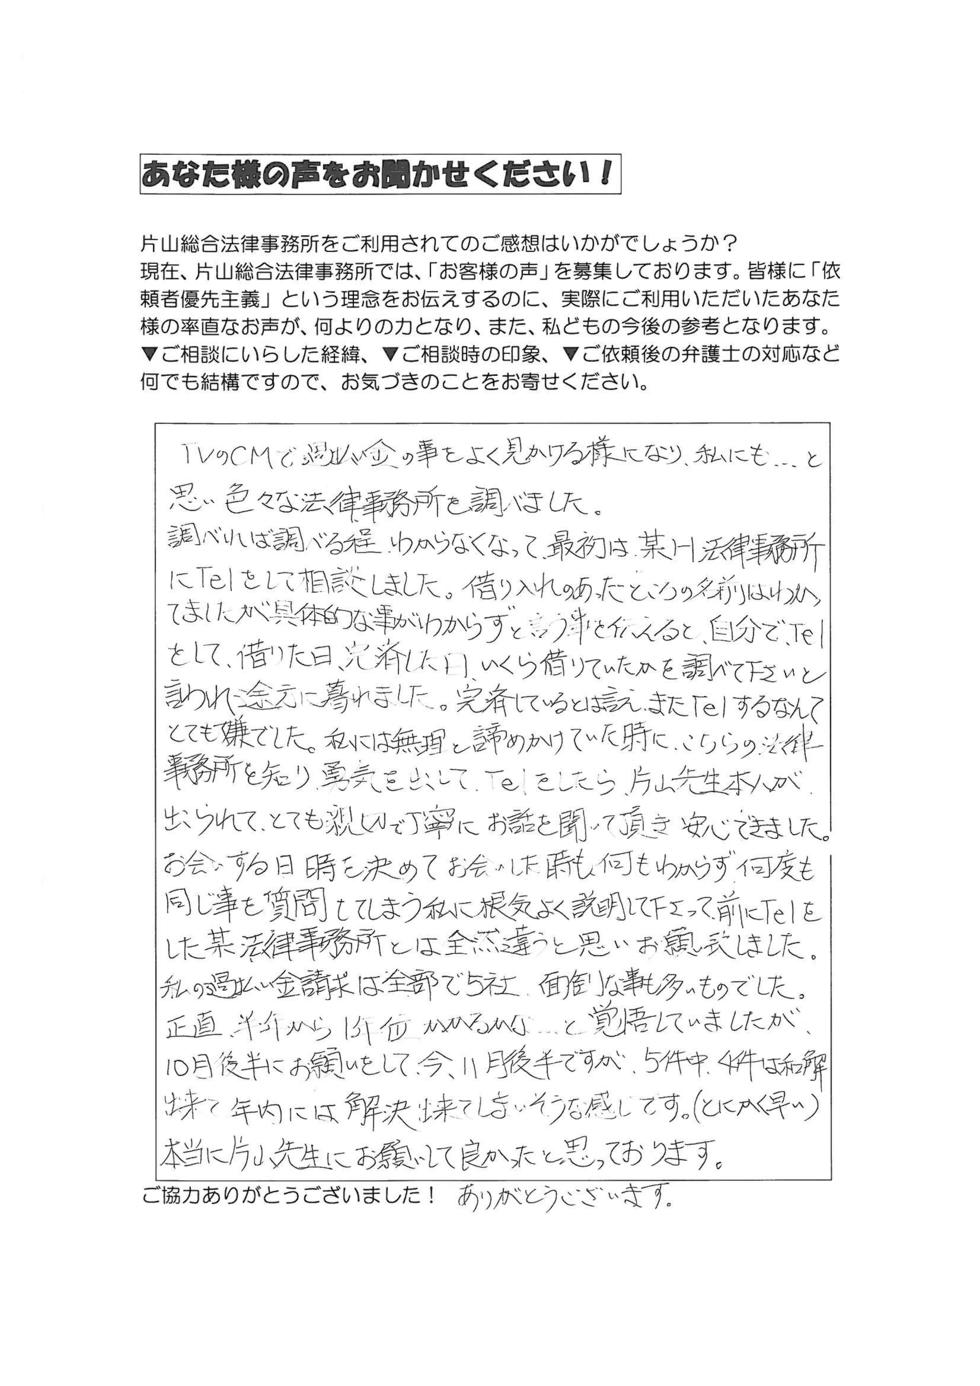 あなた様の声をお聞かせください！
片山総合法律事務所をご利用されてのご感想はいかがでしょうか？
現在、片山総合法律事務所では、「お客様の声」を募集しております。皆様に「依
頼者優先主義」という理念をお伝えするのに、実際にご利用いただいたあなた
様の率直なお声が、何よりの力となり、また、私どもの今後の参考となります。
▼ご相談にいらした経緯、▼ご相談時の印象、▼ご依頼後の弁護士の対応など
何でも結構ですので、お気づきのことをお寄せください。
TVのCMで過払い金の事をよく見かける様になり、私にも…と
思い色々な法律事務所を調べました。
調べれば調べる程、わからなくなって、最初は、某H法律事務所
にTelをして相談しました。借り入れのあったところの名前はわかっ
てましたが具体的な事がわからずと言う事を伝えると、自分で、Tel
をして、借りた日、完済した日、いくら借りていたかを調べて下さいと
言われ途方に暮れました。完済しているとは言え、またTelするなんて
とても嫌でした。私には無理と諦めかけていた時に、こちらの法律
事務所を知り、勇気を出して、Telをしたら、片山先生本人が
出られて、とても親切で丁寧にお話を聞いて頂き安心できました。
お会いする日時を決めてお会いした時も、何もわからず何度も
同じ事を質問してしまう私に根気よく説明して下さって、前にTelを
した某法律事務所とは全然違うと思いお願い致しました。
私の過払い金請求は全部で5社、面倒な事も多いものでした。
正直、半年から1年位かかるかな…と覚悟していましたが、
10月後半にお願いをして、今、11月後半ですが、5件中、4件は和解
出来て年内には解決出来てしまいそうな感じです。(とにかく早い)
本当に片山先生にお願いして良かったと思っております。
ご協力ありがとうございました！ ありがとうございます。